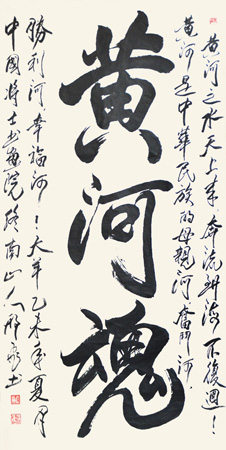 黄河之水天上来奔流到海不復迴！
黄河是中華民族的母親河奮鬥河！
黄河魂
勝利河幸福河！大羊乙未年夏月
中國將士書画院終南山人